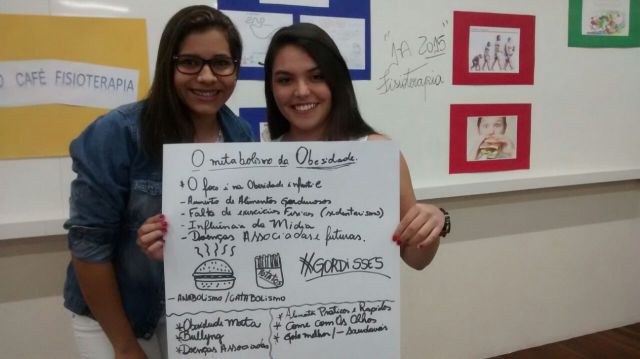 O CAFÉ FISIOTERAPIA
"JA 2015"
Fisioterapia
O metabolismo da Obesidade.
* O foco é na Obesidade infantil
- Aumento de Alimentos Gordurosos
- Falta de exercícios Físicos (sedentarismo)
- Influência da Mídia
- Doenças Associadas e futuras.
POTATOS
#GORDISSES
- ANABOLISMO / CATABOLISMO
* Obesidade Mata
* Bullyng
* Doenças Associadas
* Alimentos Práticos e Rápidos
* Come com Os Olhos
* Gole melhor / - Saudaveis